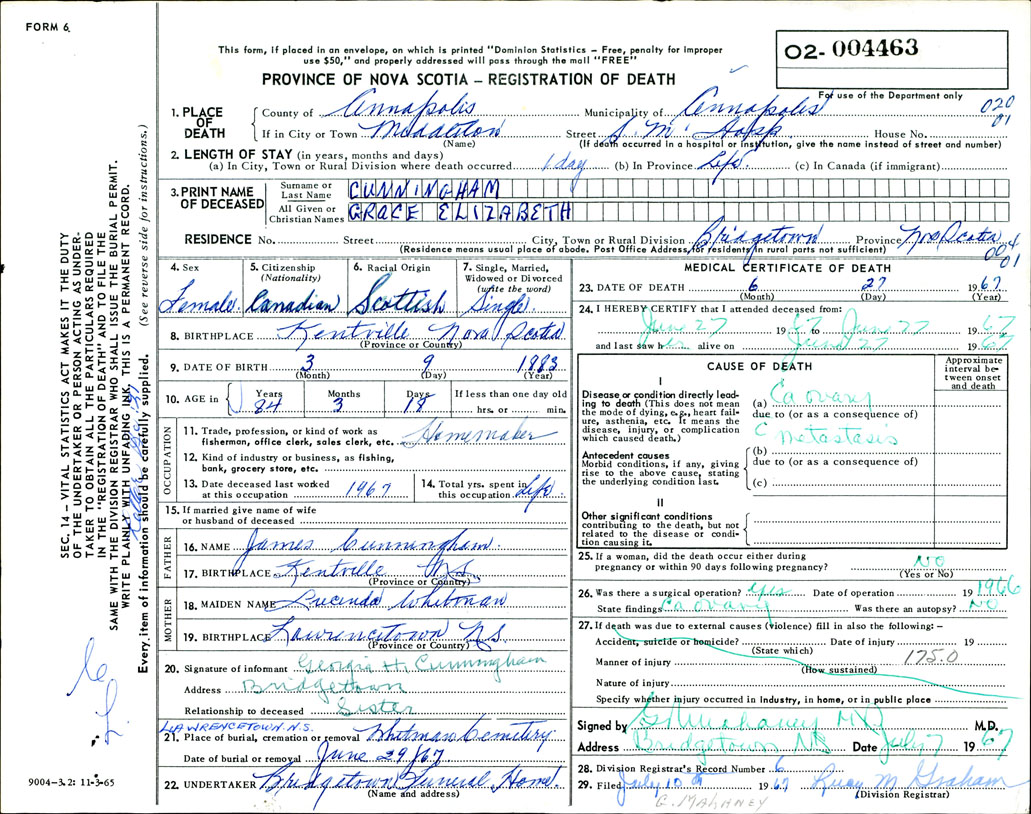 FORM 6
This form, if placed in an envelope, on which is printed "Dominion Statistics – Free, penalty for improper
use $50," and properly addressed will pass through the mail "FREE"
02-004463
For use of the Department only
PROVINCE OF NOVA SCOTIA – REGISTRATION OF DEATH
020
01
1. PLACE OF DEATH
County of Annapolis Municipality of Annapolis
If in City or Town Middleton Street S. M. Hosp. House No.
(Name) (If death occurred in a hospital or institution, give the name instead of street and number)
2. LENGTH OF STAY (in years, months and days)
(a) In City, Town or Rural Division where death occurred 1 day (b) In Province Life (c) In Canada (if immigrant)
3. PRINT NAME OF DECEASED
Surname or Last Name CUNNINGHAM
All Given or Christian Names GRACE ELIZABETH
RESIDENCE No. Street City, Town or Rural Division Bridgetown Province Nova Scotia
(Residence means usual place of abode. Post Office Address, for residents in rural parts not sufficient)
004
01
4. Sex Female
5. Citizenship (Nationality) Canadian
6. Racial Origin Scottish
7. Single, Married, Widowed or Divorced (write the word) Single
8. BIRTHPLACE Kentville Nova Scotia
(Province or Country)
9. DATE OF BIRTH 3 9 1883
(Month) (Day) (Year)
10. AGE in Years 84 Months 3 Days 18 If less than one day old hrs. or min.
OCCUPATION
11. Trade, profession, or kind of work as fisherman, office clerk, sales clerk, etc. Homemaker
12. Kind of industry or business, as fishing, bank, grocery store, etc.
13. Date deceased last worked at this occupation 1967
14. Total yrs. spent in this occupation Life
15. If married give name of wife or husband of deceased
FATHER
16. NAME James Cunningham
17. BIRTHPLACE Kentville N.S.
(Province or Country)
MOTHER
18. MAIDEN NAME Lucinda Whitman
19. BIRTHPLACE Lawrencetown N.S.
(Province or Country)
20. Signature of informant Georgia H. Cunningham
Address Bridgetown
Relationship to deceased Sister
LAWRENCETOWN. N.S.
21. Place of burial, cremation or removal Whitman Cemetery
Date of burial or removal June 29/67
22. UNDERTAKER Bridgetown Funeral Home
(Name and address)
MEDICAL CERTIFICATE OF DEATH
23. DATE OF DEATH 6 27 1967
(Month) (Day) (Year)
24. I HEREBY CERTIFY that I attended deceased from:
Jun 27 1967 to Jun 27 1967
and last saw her alive on June 27 1967
CAUSE OF DEATH
Approximate interval between onset and death
I
Disease or condition directly leading to death (This does not mean the mode of dying, e.g., heart failure, asthenia, etc. It means the disease, injury, or complication which caused death.)
(a) Ca ovary
due to (or as a consequence of)
c metastasis
Antecedent causes
Morbid conditions, if any, giving rise to the above cause, stating the underlying condition last.
(b)
due to (or as a consequence of)
(c)
II
Other significant conditions contributing to the death, but not related to the disease or condition causing it.
25. If a woman, did the death occur either during pregnancy or within 90 days following pregnancy? NO
(Yes or No)
26. Was there a surgical operation? yes Date of operation 1966
State findings Ca ovary Was there an autopsy? NO
27. If death was due to external causes (violence) fill in also the following: –
Accident, suicide or homicide? Date of injury 19
(State which)
Manner of injury 175.0
(How sustained)
Nature of injury
Specify whether injury occurred in Industry, in home, or in public place
Signed by G. Mahaney MD M.D.
Address Bridgetown NS Date July 7 1967
28. Division Registrar's Record Number 6
29. Filed July 10th 1967 M. Graham
(Division Registrar)
G. MAHANEY
9004–3.2: 11-3-65
SEC. 14 – VITAL STATISTICS ACT MAKES IT THE DUTY
OF THE UNDERTAKER OR PERSON ACTING AS UNDER-
TAKER TO OBTAIN ALL THE PARTICULARS REQUIRED
IN THE "REGISTRATION OF DEATH" AND TO FILE THE
SAME WITH THE DIVISION REGISTRAR WHO SHALL ISSUE THE BURIAL PERMIT.
WRITE PLAINLY WITH UNFADING INK, THIS IS A PERMANENT RECORD.
Every item of information should be carefully supplied. (See reverse side for instructions.)